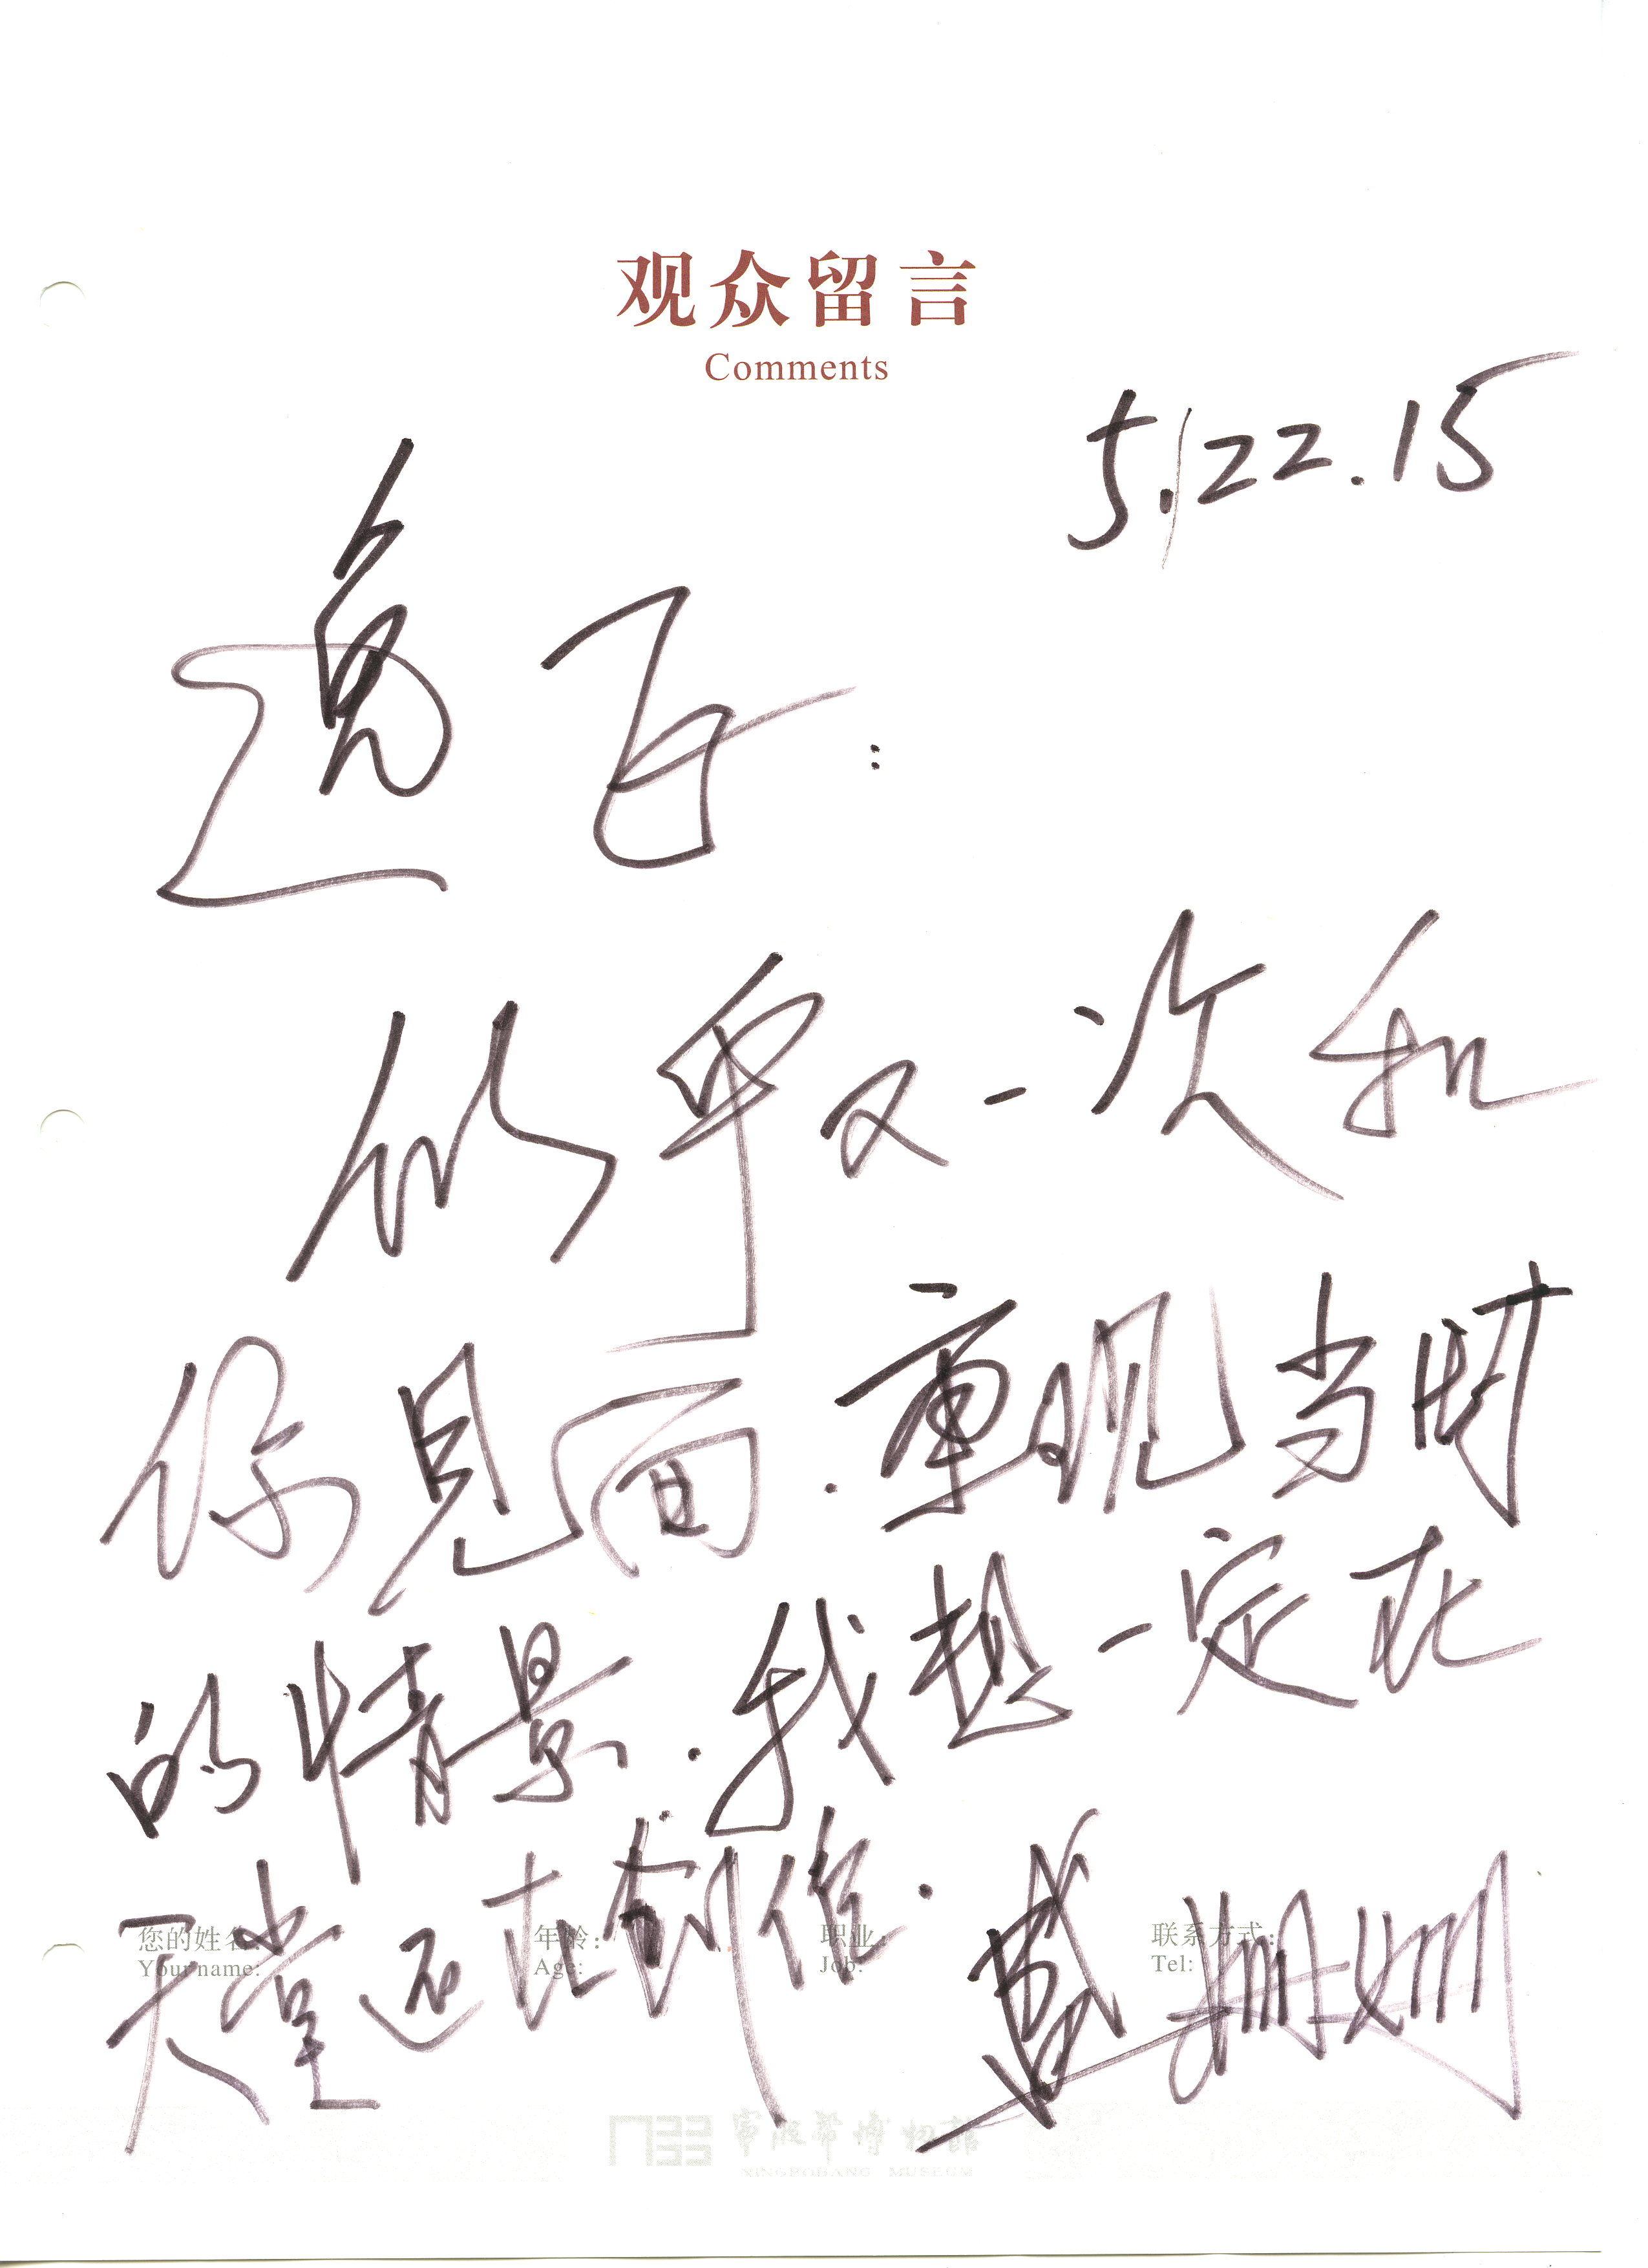 观众留言
Comments
5.22.15
逸飞：
似乎又一次和
你見面.重现当时
的情景.我想一定在
天堂还在创作.盛姗姗
您的姓名: 年龄: 职业: 联系方式:
Your name: Age: Job: Tel:
寧波幫博物館
NINGBOBANG MUSEUM